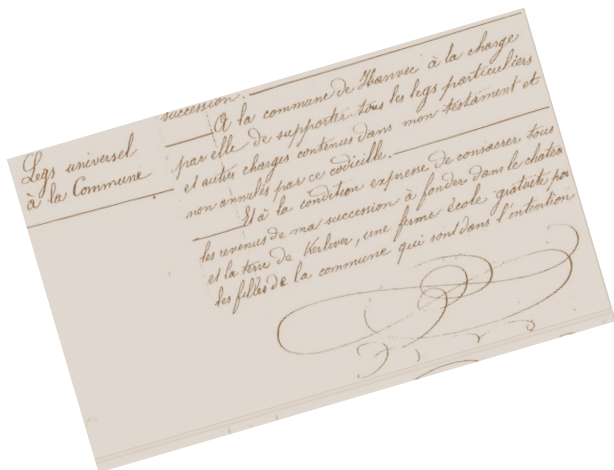 succession.
A la commune de Hanvec à la charge
par elle de supporter tous les legs particuliers
et autres charges contenus dans mon testament et
non annulés par ce codicille.
Et à la condition expresse de consacrer tous
les revenus de ma succession à fonder dans le chatea
et la terre de Kerliver, une ferme école gratuite por
les filles de la commune qui sont dans l'intention
Legs universel
à la Commune